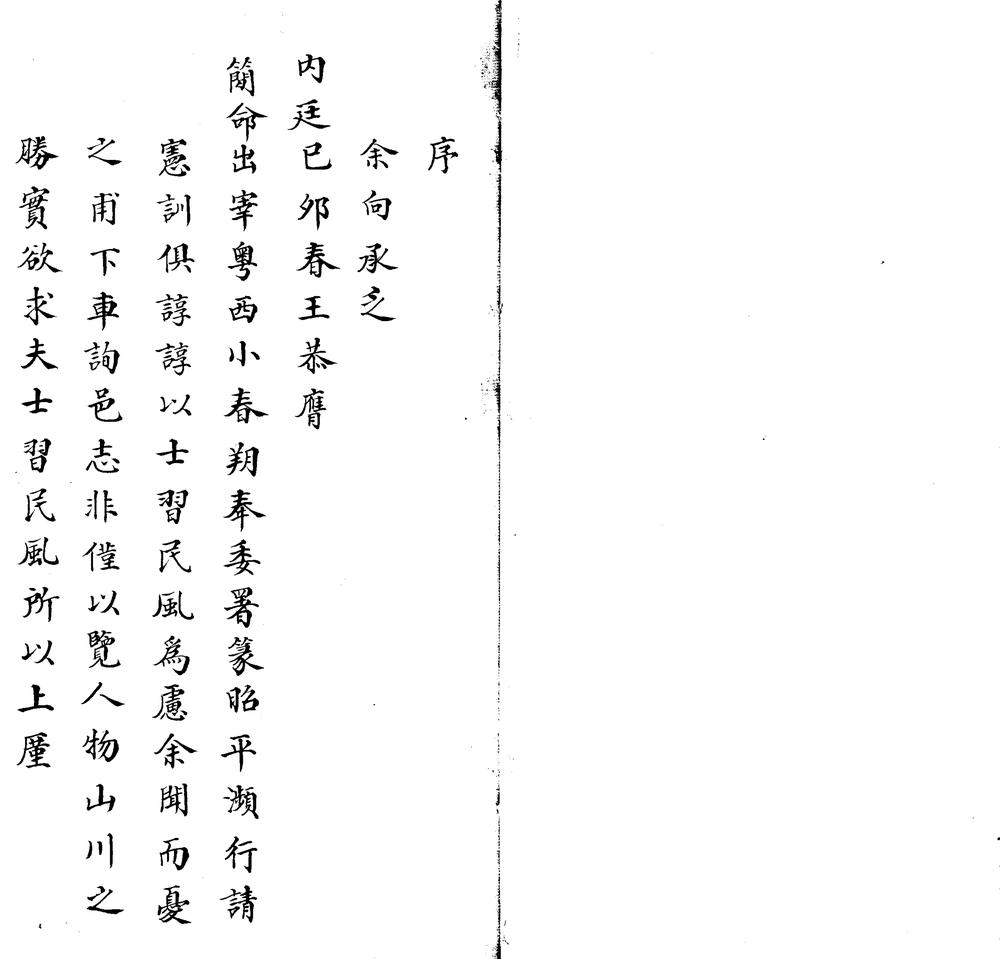 序
余向承乏
內廷已卯春王恭膺
簡命出宰粤西小春朔奉委署篆昭平瀕行請
憲訓俱諄諄以士習民風爲慮余聞而憂
之甫下車詢邑志非僅以覽人物山川之
勝實欲求夫士習民風所以上厪